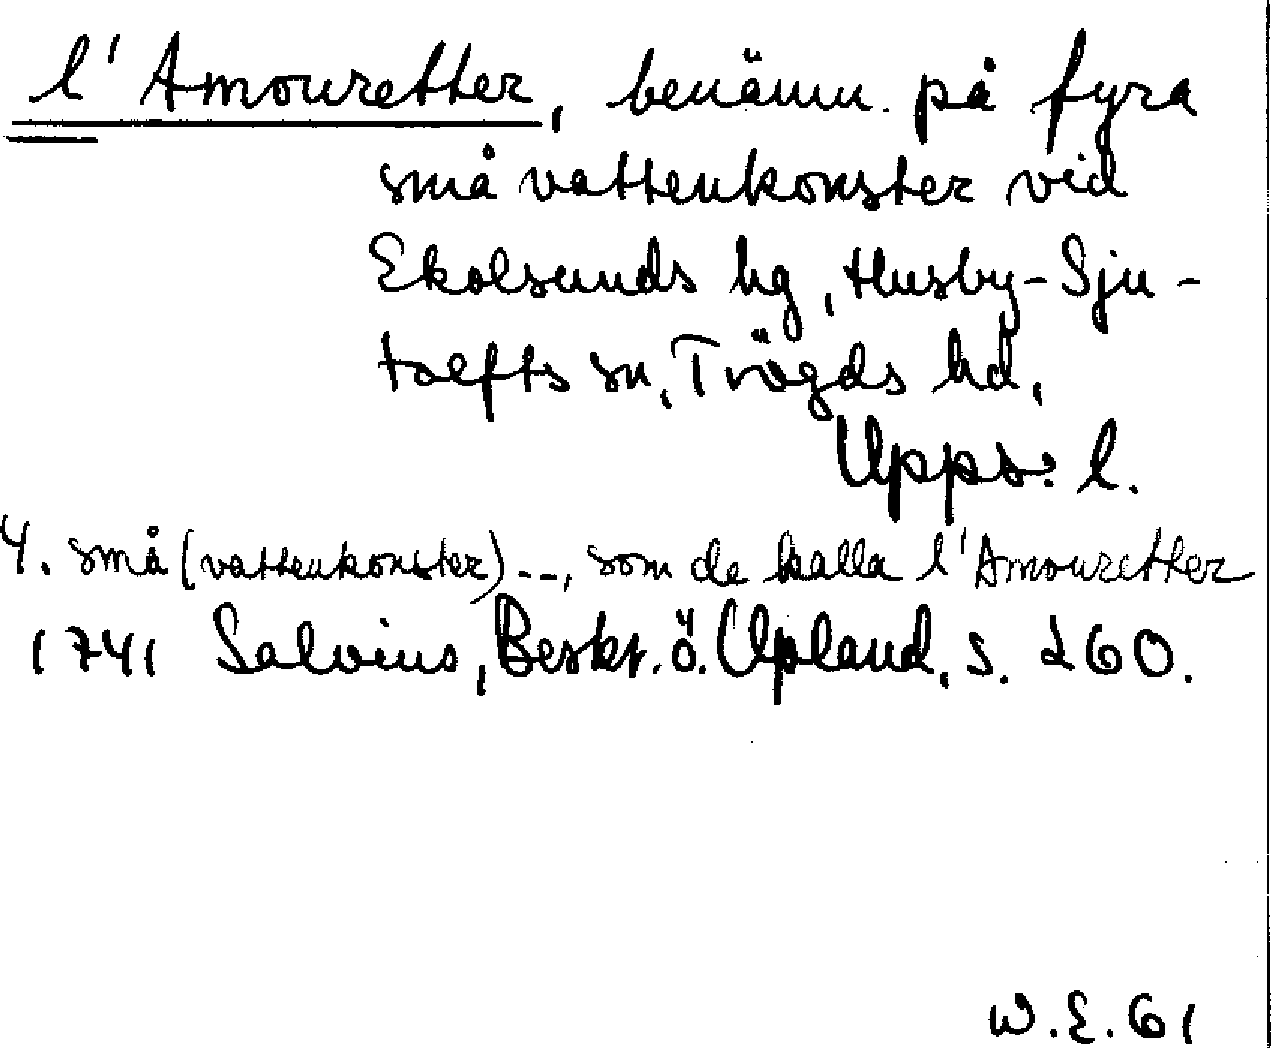 l'Amouretter, benämn. på fyra
små vattenkonster vid
Ekolsunds hg, Husby-Sju-
tolfts sn, Trögds hd,
Upps. l.
4. små (vattenkonster) --, som de kalla l'Amouretter
1741 Salvius, Beskr. ö. Upland, s. 260.
W.E.61